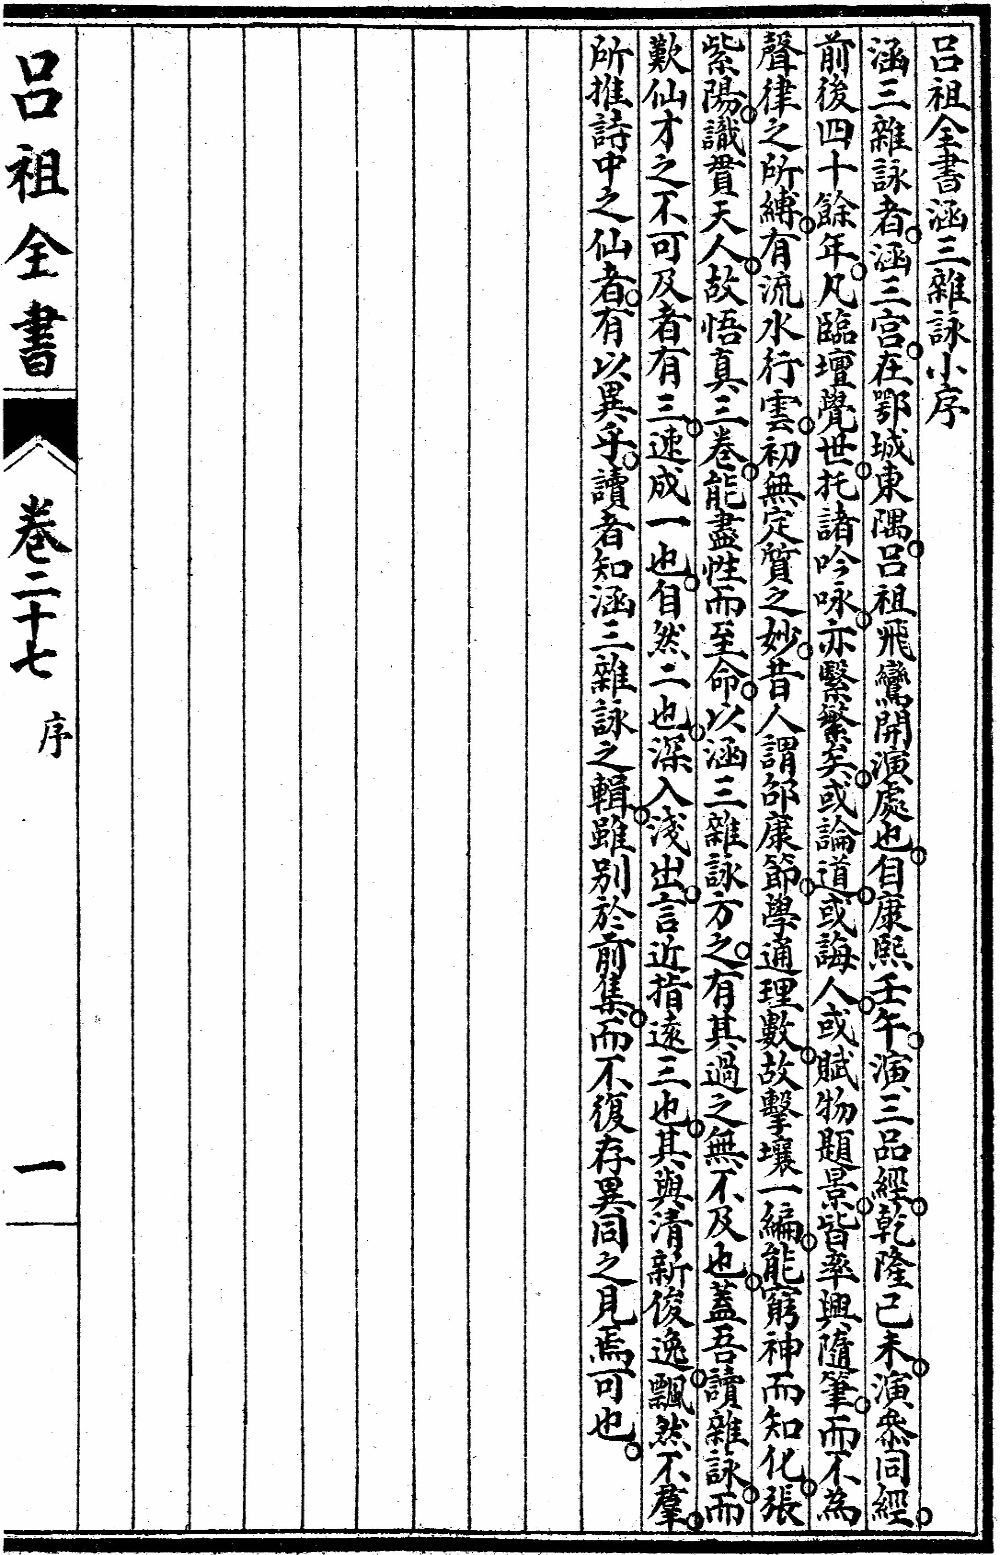 呂祖全書涵三雜詠小序
涵三雜詠者。涵三宮。在鄂城東隅。呂祖飛鸞開演處也。自康熙壬午。演三品經。乾隆己未。演參同經。
前後四十餘年。凡臨壇覺世。托諸吟咏。亦繫繁矣。或論道。或誨人。或賦物題景。皆率興隨筆。而不為
聲律之所縛。有流水行雲。初無定質之妙。昔人謂邵康節。學通理數。故擊壤一編。能窮神而知化。張
紫陽。識貫天人。故悟真三卷。能盡性而至命。以涵三雜詠方之。有其過之無不及也。蓋吾讀雜詠。而
歎仙才之不可及者有三。速成一也。自然二也。深入淺出。言近指遠三也。其與清新俊逸。飄然不羣。
所推詩中之仙者。有以異乎。讀者知涵三雜詠之輯。雖别於前集。而不復存異同之見焉可也。
呂祖全書
卷二十七
序
一